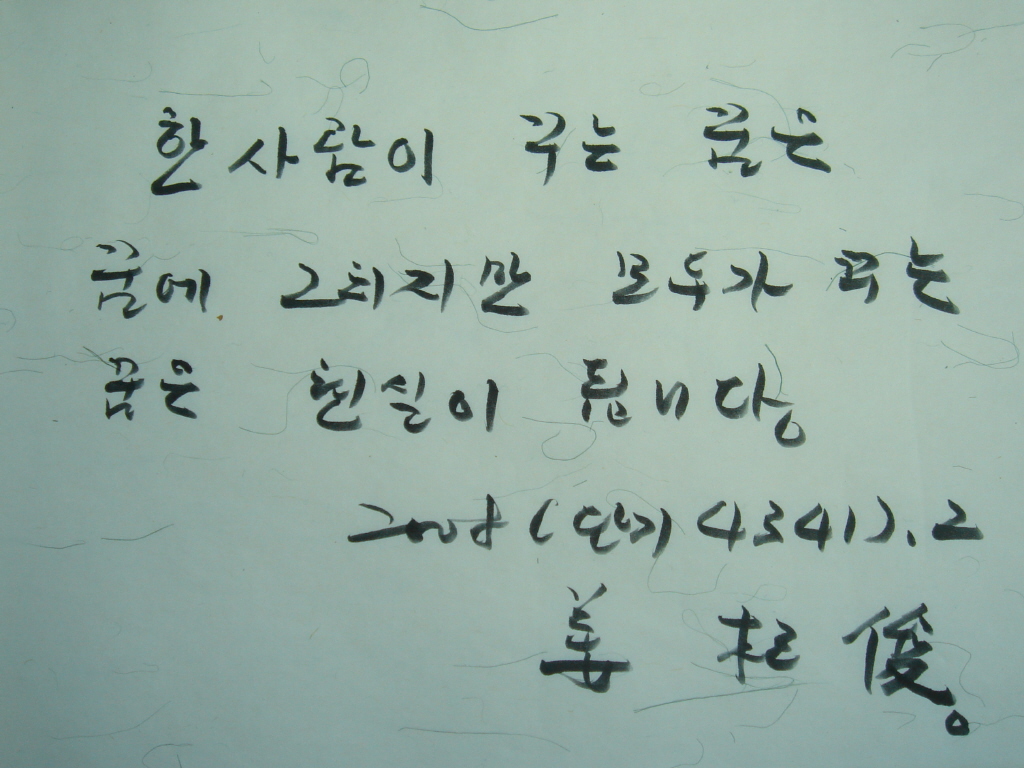 한사람이 꾸는 꿈은
꿈에 그치지만 모두가 꾸는
꿈은 현실이 됩니다。
2008(단기4341).2
姜 杞 俊。